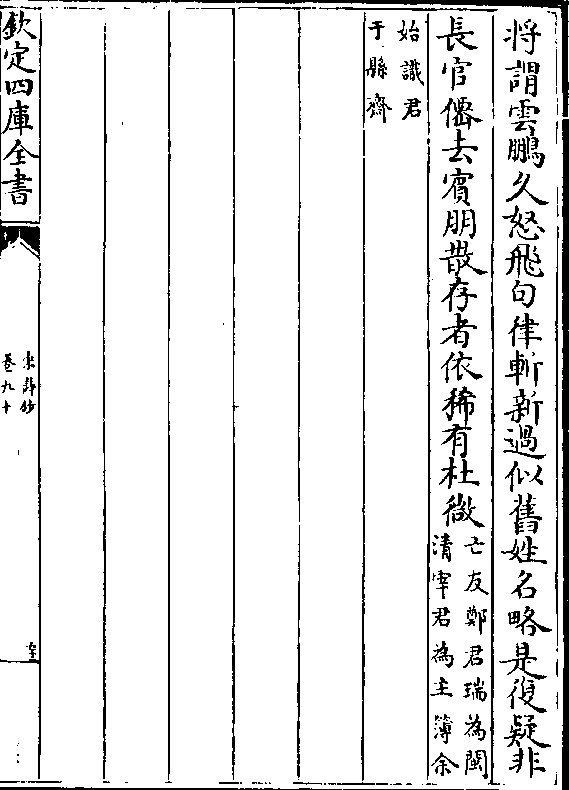 將謂雲鵬久怒飛句律斬新過似舊姓名略是復疑非
長官僊去賓朋散存者依稀有杜微
亡友鄭君瑞為閩
清宰君為主簿余
始識君
于縣齋
欽定四庫全書
宋詩鈔
卷九十